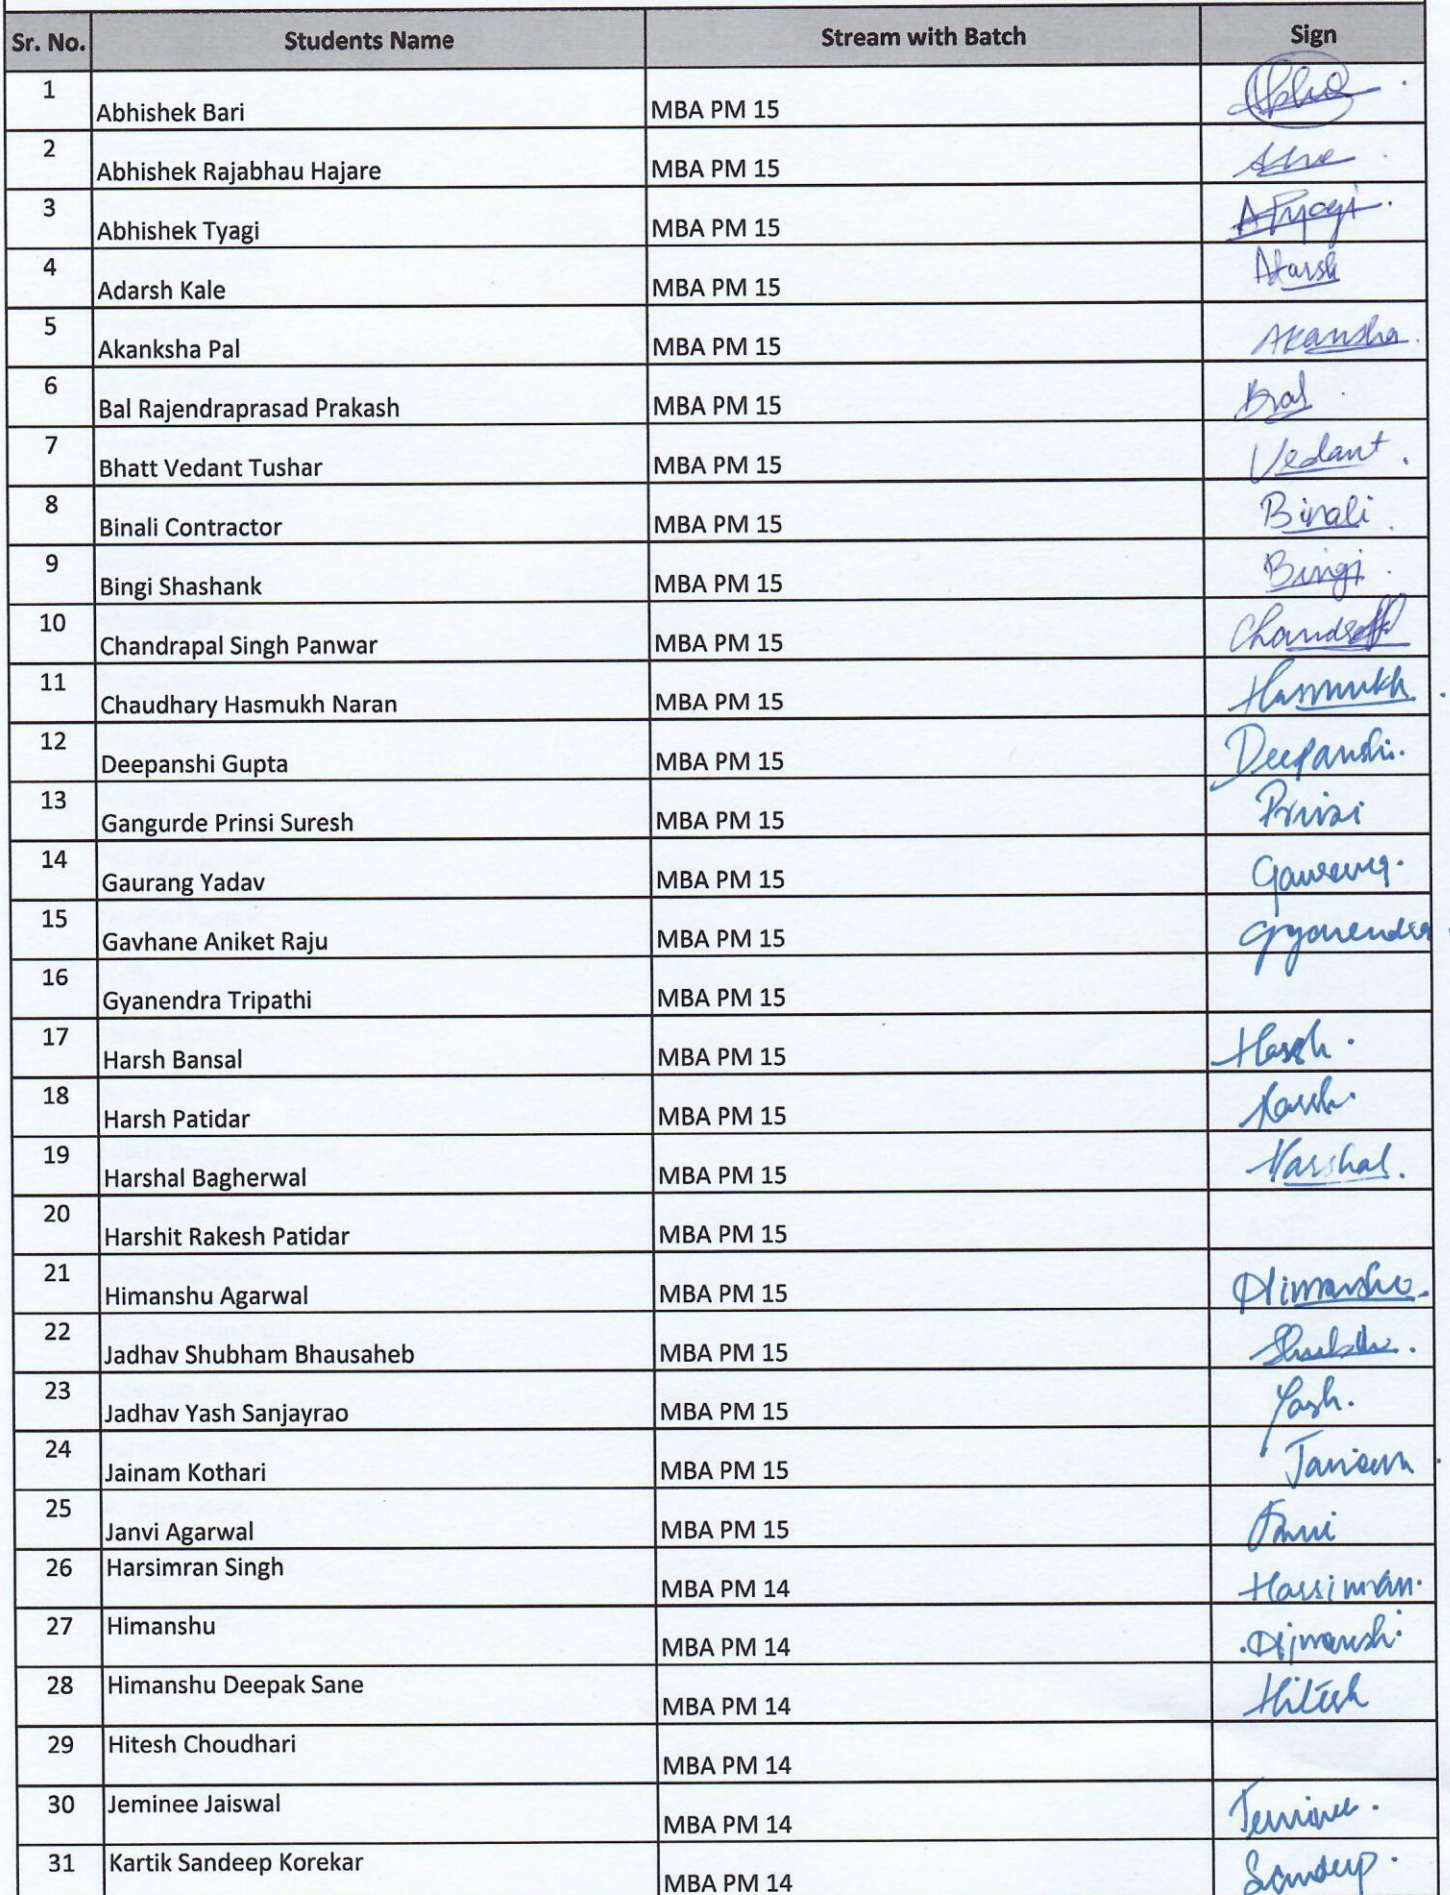 Sr. No. Students Name Stream with Batch Sign
1 Abhishek Bari MBA PM 15
2 Abhishek Rajabhau Hajare MBA PM 15
3 Abhishek Tyagi MBA PM 15 ATyagi.
4 Adarsh Kale MBA PM 15 Adarsh
5 Akanksha Pal MBA PM 15 Akansha.
6 Bal Rajendraprasad Prakash MBA PM 15 Bal
7 Bhatt Vedant Tushar MBA PM 15 Vedant.
8 Binali Contractor MBA PM 15 Binali.
9 Bingi Shashank MBA PM 15 Bingi.
10 Chandrapal Singh Panwar MBA PM 15
11 Chaudhary Hasmukh Naran MBA PM 15 Hasmukh.
12 Deepanshi Gupta MBA PM 15 Deepanshi.
13 Gangurde Prinsi Suresh MBA PM 15 Prinsi
14 Gaurang Yadav MBA PM 15 Gaurang.
15 Gavhane Aniket Raju MBA PM 15 Gyanendra.
16 Gyanendra Tripathi MBA PM 15
17 Harsh Bansal MBA PM 15 Harsh.
18 Harsh Patidar MBA PM 15 Harsh.
19 Harshal Bagherwal MBA PM 15 Harshal.
20 Harshit Rakesh Patidar MBA PM 15
21 Himanshu Agarwal MBA PM 15 Himanshu.
22 Jadhav Shubham Bhausaheb MBA PM 15
23 Jadhav Yash Sanjayrao MBA PM 15 Yash.
24 Jainam Kothari MBA PM 15
25 Janvi Agarwal MBA PM 15
26 Harsimran Singh MBA PM 14 Harsimran.
27 Himanshu MBA PM 14
28 Himanshu Deepak Sane MBA PM 14 Hitesh
29 Hitesh Choudhari MBA PM 14
30 Jeminee Jaiswal MBA PM 14 Jeminee.
31 Kartik Sandeep Korekar MBA PM 14 Sandeep.